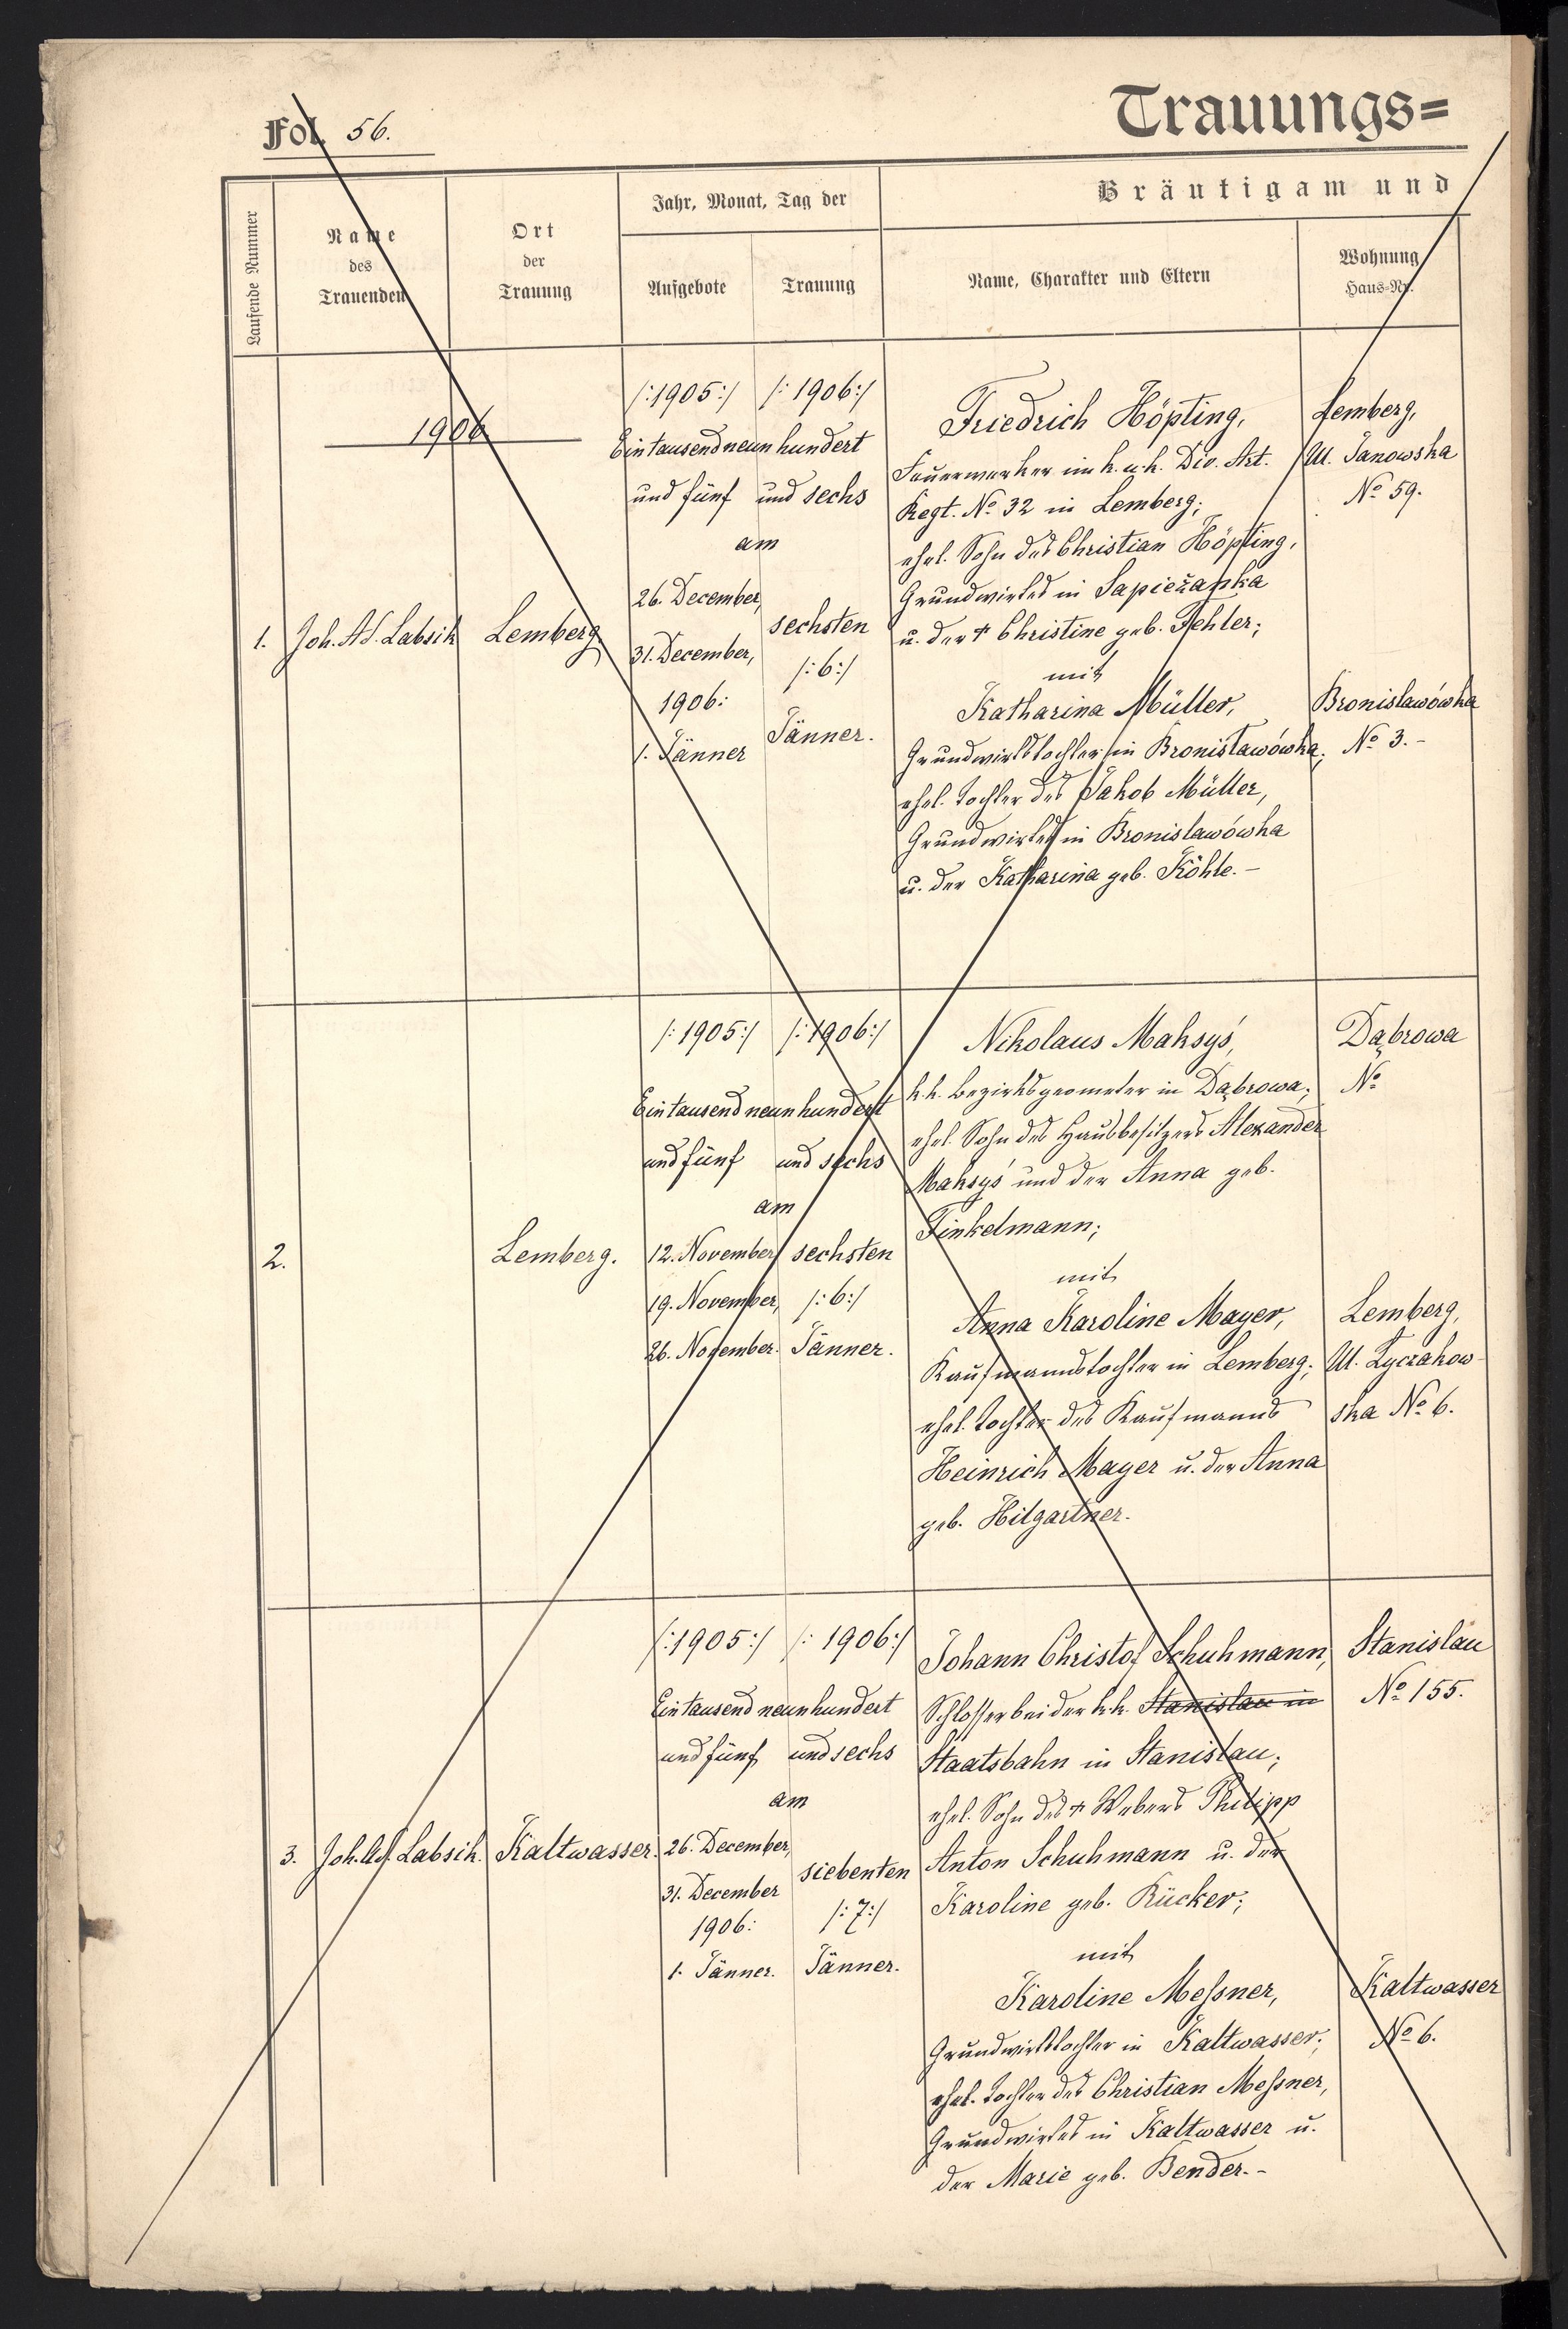 Fol. 56.
Trauungs=
Bräutigam und
Laufende Nummer
Name
des
Trauenden
Ort
der
Trauung
Jahr, Monat, Tag der
Aufgebote
Trauung
Name, Charakter und Eltern
Wohnung
Haus-Nr.
1906
1.
Joh. Ad. Labsik
Lemberg
/:1905:/ /:1906:/
Eintausendneunhundert
und fünf und sechs
am
26. December,
31. December,
1906:
1. Jänner
sechsten
/:6:/
Jänner.
Friedrich Höpting,
Feuerwerker im k. u. k. Div. Art.
Regt. No 32 in Lemberg;
ehel. Sohn des Christian Höpting,
Grundwirtes in Sapieżanka
u. der † Christine geb. Fehler;
mit
Katharina Müller,
Grundwirtstochter in Bronisławówka;
ehel. Tochter des Jakob Müller,
Grundwirtes in Bronislawówka
u. der Katharina geb. Köhle.-
Lemberg,
Ul. Janowska
No 59.
Bronislawówka
No 3.-
2.
Lemberg.
/:1905:/ /:1906:/
Eintausendneunhundert
und fünf und sechs
am
12. November
19. November,
26. November.
sechsten
/:6:/
Jänner.
Nikolaus Maksyś,
k. k. Bezirksgeometer in Dąbrowa;
ehel. Sohn des Hausbesitzers Alexander
Maksyś und der Anna geb.
Finkelmann;
mit
Anna Karoline Mayer,
Kaufmannstochter in Lemberg;
ehel. Tochter des Kaufmanns
Heinrich Mayer u. der Anna
geb. Hilgartner.
Dąbrowa
No
Lemberg,
Ul. Łyczakow-
ska No 6.
3.
Joh. Ad. Labsik.
Kaltwasser.
/:1905:/ /:1906:/
Eintausendneunhundert
und fünf und sechs
am
26. December,
31. December
1906:
1. Jänner.
siebenten
/:7:/
Jänner.
Johann Christof Schuhmann,
Schlosser bei der k. k. Stanislau in
Staatsbahn in Stanislau;
ehel. Sohn des † Webers Philipp
Anton Schuhmann u. der
Karoline geb. Rücker;
mit
Karoline Meßner,
Grundwirtstochter in Kaltwasser;
ehel. Tochter des Christian Meßner,
Grundwirtes in Kaltwasser u.
der Marie geb. Bender.-
Stanislau
No 155.
Kaltwasser
No 6.